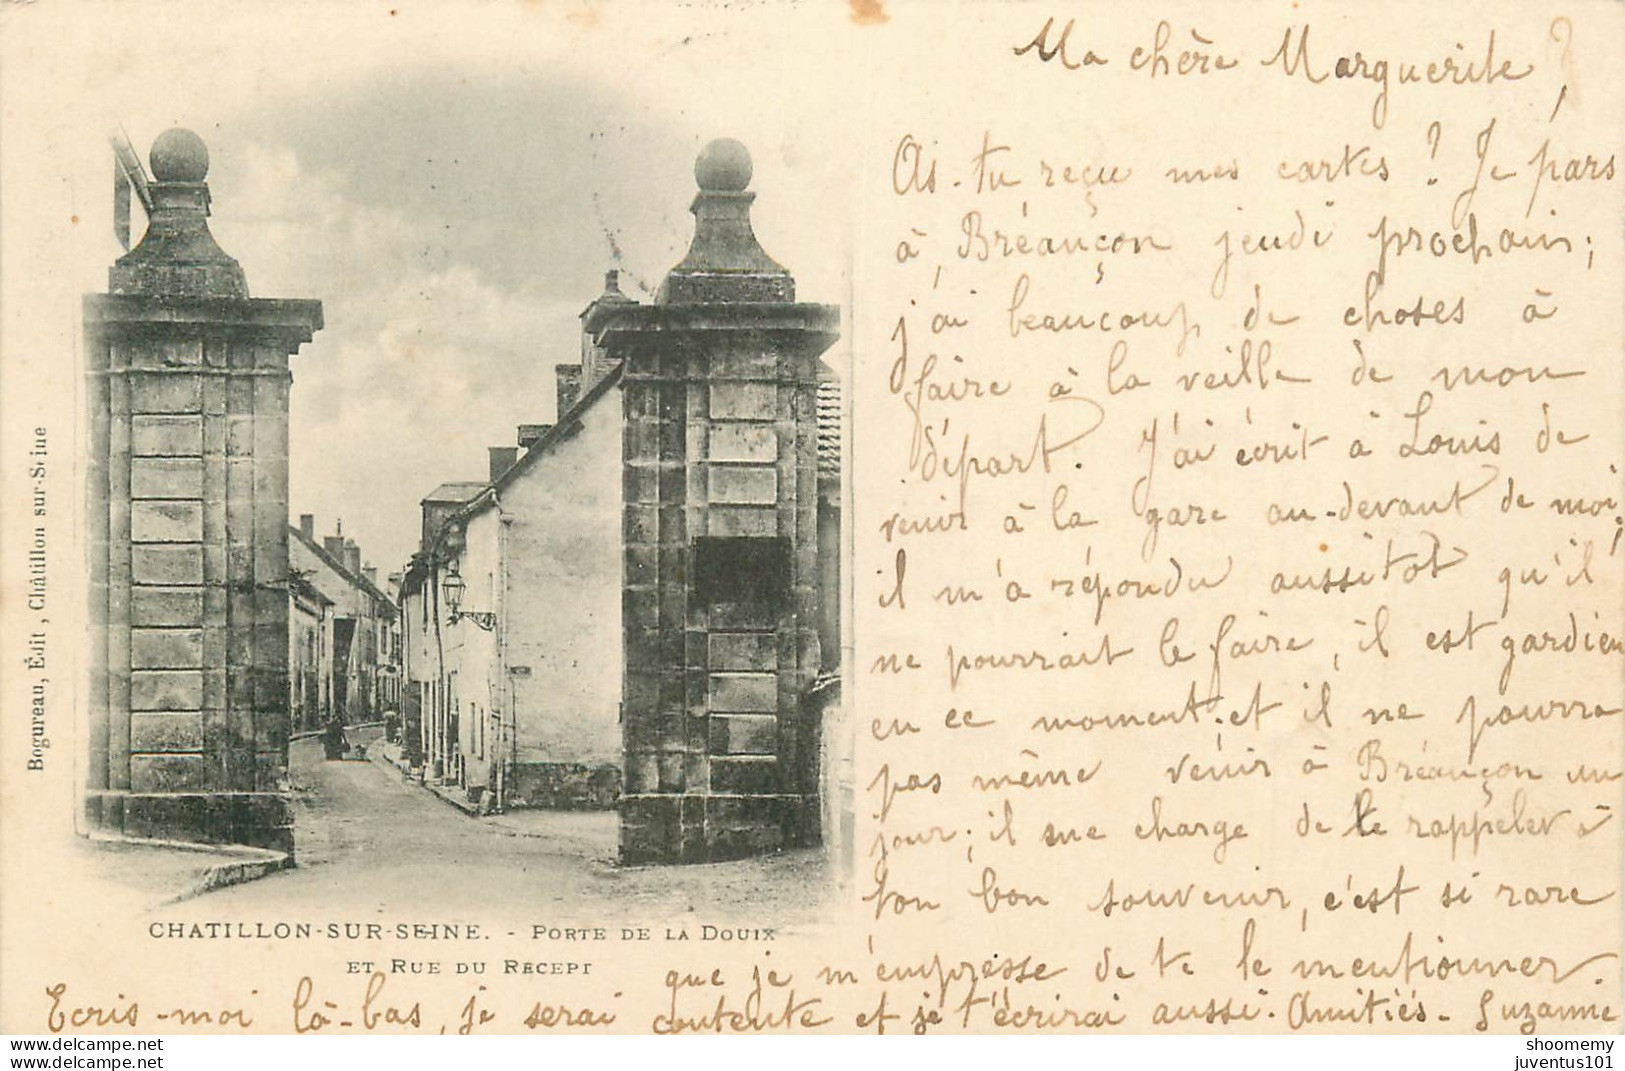 Ma chère Marguerite,
As-tu reçu mes cartes ? Je pars
à Bréançon jeudi prochain ;
j'ai beaucoup de choses à
faire à la veille de mon
départ. J'ai écrit à Louis de
venir à la gare au-devant de moi,
il m'a répondu aussitot qu'il
ne pourrait le faire, il est gardien
en ce moment, et il ne pourra
pas même venir à Bréançon un
jour ; il me charge de te rappeler à
ton bon souvenir, c'est si rare
que je m'empresse de te le mentionner.
Ecris-moi là-bas, je serai contente et je t'écrirai aussi. Amitiés - Suzanne
Bogureau, Édit, Châtillon sur-Seine
CHATILLON-SUR-SEINE. - PORTE DE LA DOUIX
ET RUE DU RECEPT
https://www.delcampe.net
https://www.delcampe.net
shoomemy
juventus101